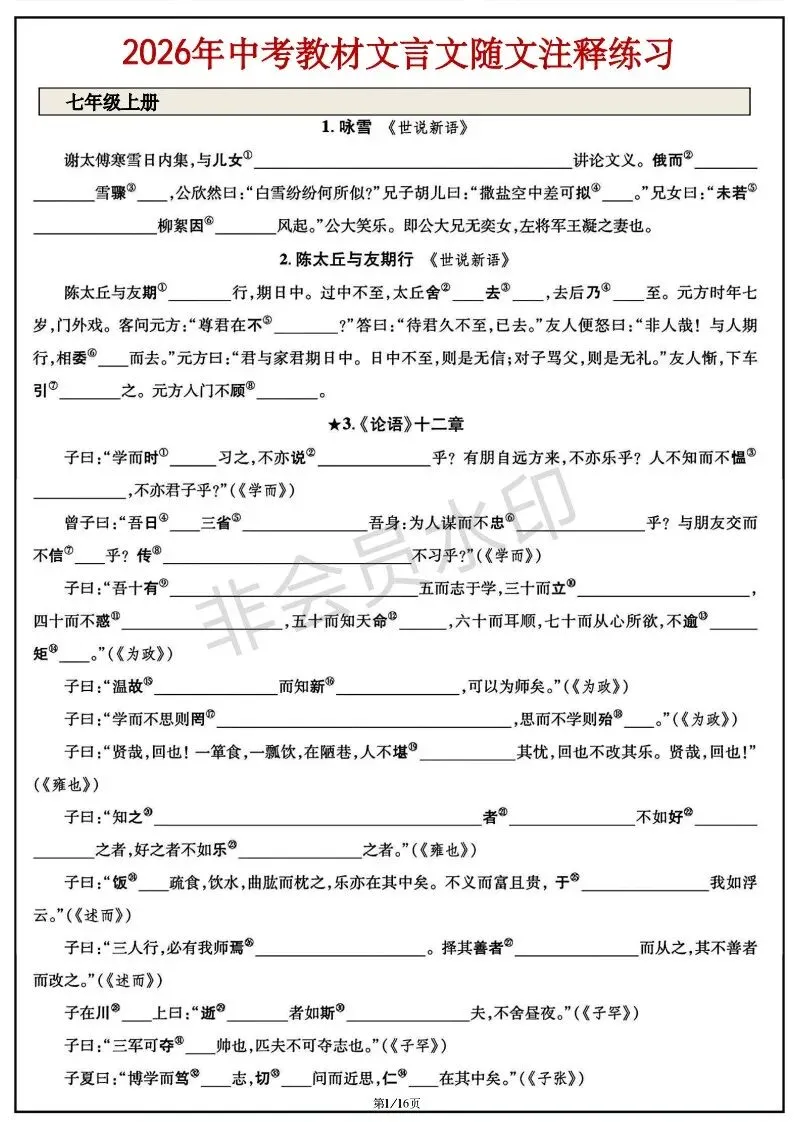 2026年中考教材文言文随文注释练习
七年级上册
1. 咏雪 《世说新语》
谢太傅寒雪日内集,与儿女①____________________讲论文义。俄而②________
________雪骤③____,公欣然曰:“白雪纷纷何所似?”兄子胡儿曰:“撒盐空中差可拟④____。”兄女曰:“未若⑤
________________柳絮因⑥________风起。”公大笑乐。即公大兄无奕女,左将军王凝之妻也。
2. 陈太丘与友期行 《世说新语》
陈太丘与友期①________行,期日中。过中不至,太丘舍②____去③____,去后乃④____至。元方时年七
岁,门外戏。客问元方:“尊君在不⑤________?”答曰:“待君久不至,已去。”友人便怒曰:“非人哉!与人期
行,相委⑥____而去。”元方曰:“君与家君期日中。日中不至,则是无信;对子骂父,则是无礼。”友人惭,下车
引⑦________之。元方入门不顾⑧________。
★3.《论语》十二章
子曰:“学而时①______习之,不亦说②______________乎?有朋自远方来,不亦乐乎?人不知而不愠③
____________,不亦君子乎?”(《学而》)
曾子曰:“吾日④____三省⑤________________吾身:为人谋而不忠⑥________________乎?与朋友交而
不信⑦____乎?传⑧________________________________不习乎?”(《学而》)
子曰:“吾十有⑨________________________________五而志于学,三十而立⑩______________________,
四十而不惑⑪____________________,五十而知天命⑫______,六十而耳顺,七十而从心所欲,不逾⑬______
矩⑭____。”(《为政》)
子曰:“温故⑮________________而知新⑯________________,可以为师矣。”(《为政》)
子曰:“学而不思则罔⑰______________________________________,思而不学则殆⑱____。”(《为政》)
子曰:“贤哉,回也!一箪食,一瓢饮,在陋巷,人不堪⑲____________其忧,回也不改其乐。贤哉,回也!”
(《雍也》)
子曰:“知之⑳__________________________________________者㉑________________不如好㉒________
________之者,好之者不如乐㉓________________之者。”(《雍也》)
子曰:“饭㉔____疏食,饮水,曲肱而枕之,乐亦在其中矣。不义而富且贵,于㉕________________我如浮
云。”(《述而》)
子曰:“三人行,必有我师焉㉖______________________。择其善者㉗________________而从之,其不善者
而改之。”(《述而》)
子在川㉘____上曰:“逝㉙________者如斯㉚________________夫,不舍昼夜。”(《子罕》)
子曰:“三军可夺㉛____帅也,匹夫不可夺志也。”(《子罕》)
子夏曰:“博学而笃㉜____志,切㉝____问而近思,仁㉞____在其中矣。”(《子张》)
非会员水印
第1/16页